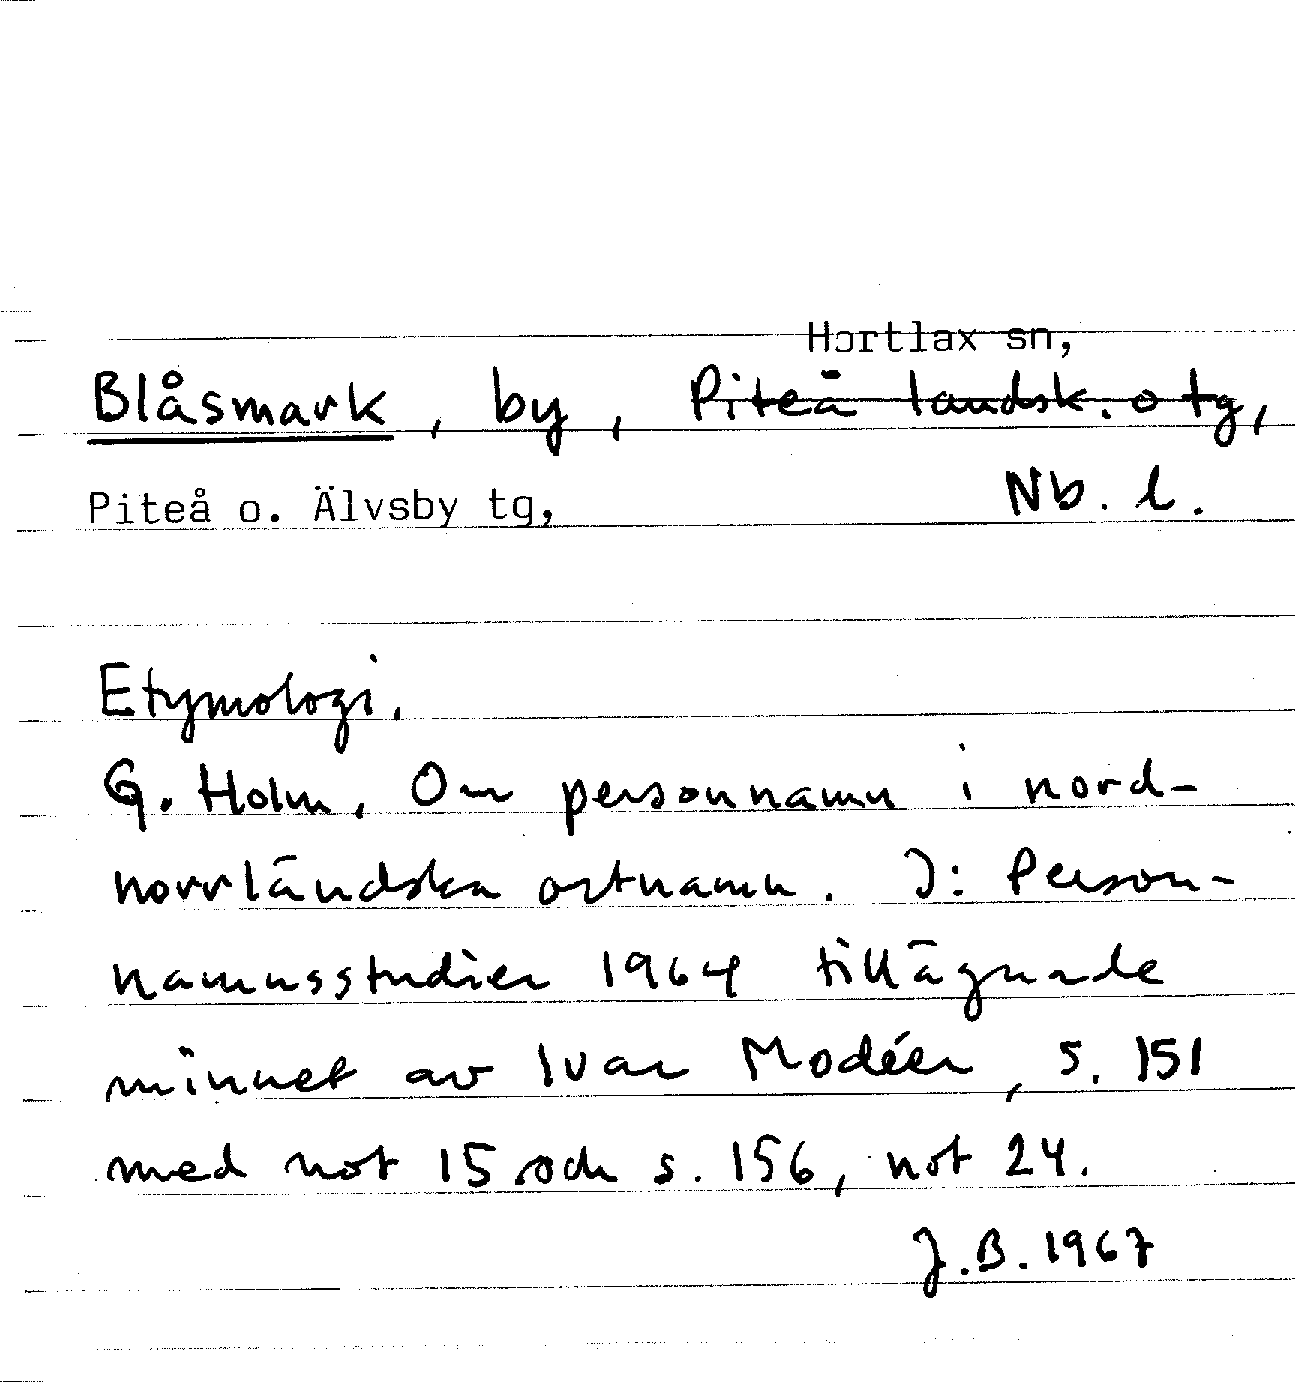 Hortlax sn,
Blåsmark, by, Piteå landsk. o tg,
Piteå o. Älvsby tg, Nb. l.
Etymologi.
G. Holm, Om personnamn i nord-
norrländska ortnamn. I: Person-
namnsstudier 1964 tillägnade
minnet av Ivar Modéer, s. 151
med not 15 och s. 156, not 24.
J.B. 1967